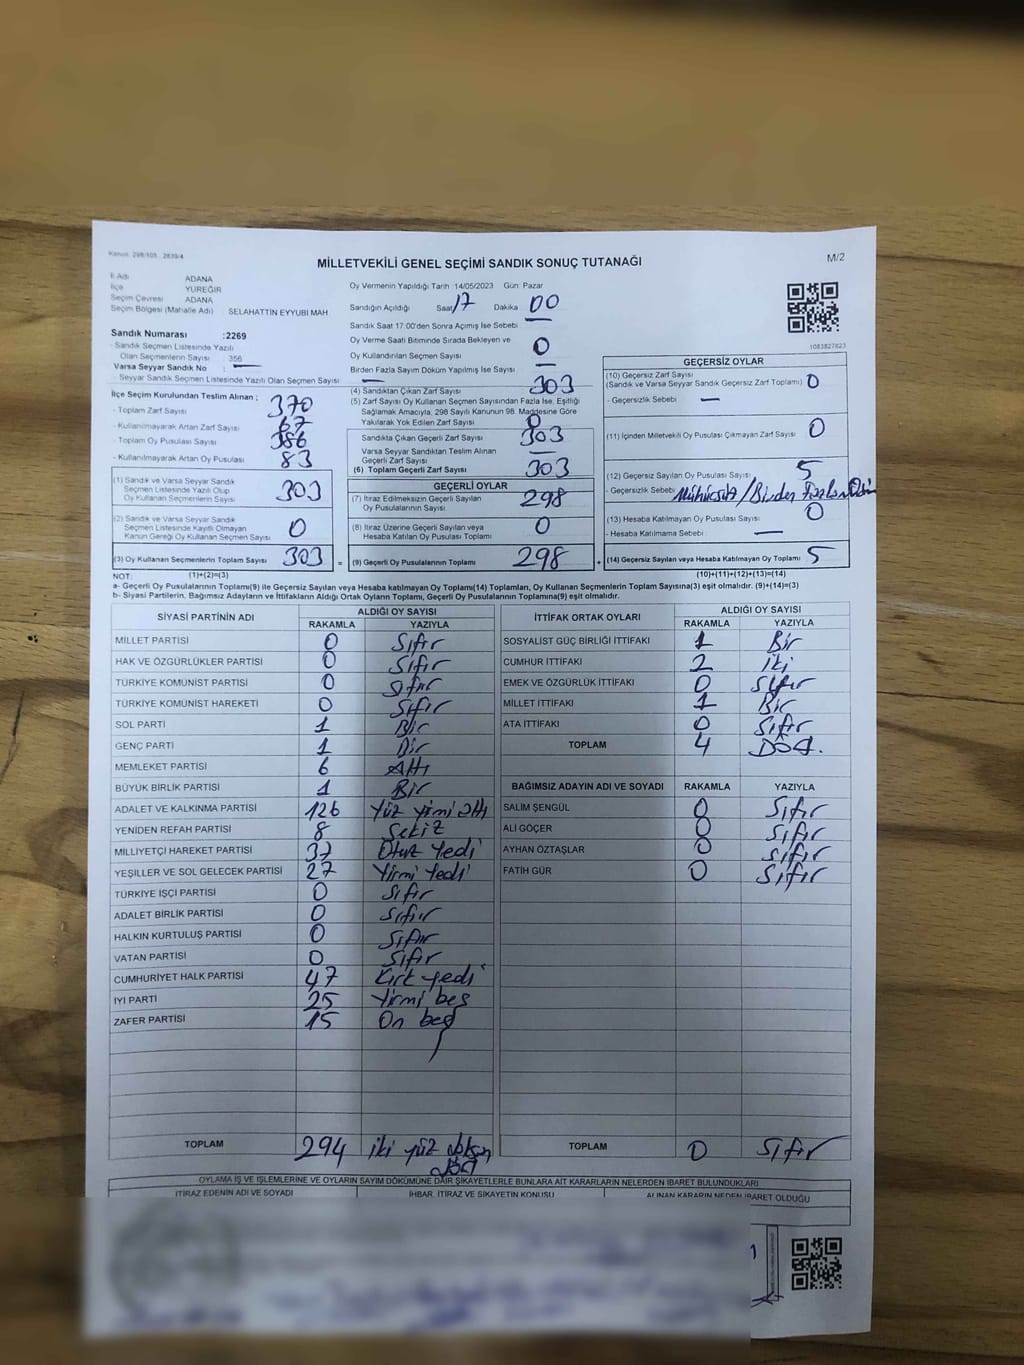 Kanun: 298/105 , 2839/4
MİLLETVEKİLİ GENEL SEÇİMİ SANDIK SONUÇ TUTANAĞI
M/2
İl Adı ADANA
İlçe YÜREĞİR
Seçim Çevresi ADANA
Seçim Bölgesi (Mahalle Adı) SELAHATTİN EYYUBİ MAH
Sandık Numarası :2269
- Sandık Seçmen Listesinde Yazılı
Olan Seçmenlerin Sayısı 356
Varsa Seyyar Sandık No : —
Seyyar Sandık Seçmen Listesinde Yazılı Olan Seçmen Sayısı : —
İlçe Seçim Kurulundan Teslim Alınan ;
- Toplam Zarf Sayısı 370
- Kullanılmayarak Artan Zarf Sayısı 67
- Toplam Oy Pusulası Sayısı 386
- Kullanılmayarak Artan Oy Pusulası 83
(1) Sandık ve Varsa Seyyar Sandık
Seçmen Listesinde Yazılı Olup
Oy Kullanan Seçmenlerin Sayısı 303
(2) Sandık ve Varsa Seyyar Sandık
Seçmen Listesinde Kayıtlı Olmayan
Kanun Gereği Oy Kullanan Seçmen Sayısı 0
(3) Oy Kullanan Seçmenlerin Toplam Sayısı 303
Oy Vermenin Yapıldığı Tarih 14/05/2023 Gün: Pazar
Sandığın Açıldığı Saat 17 Dakika 00
Sandık Saat 17.00'den Sonra Açılmış İse Sebebi —
Oy Verme Saati Bitiminde Sırada Bekleyen ve
Oy Kullandırılan Seçmen Sayısı 0
Birden Fazla Sayım Döküm Yapılmış İse Sayısı —
(4) Sandıktan Çıkan Zarf Sayısı 303
(5) Zarf Sayısı Oy Kullanan Seçmen Sayısından Fazla İse, Eşitliği
Sağlamak Amacıyla, 298 Sayılı Kanunun 98. Maddesine Göre
Yakılarak Yok Edilen Zarf Sayısı 0
Sandıkta Çıkan Geçerli Zarf Sayısı 303
Varsa Seyyar Sandıktan Teslim Alınan
Geçerli Zarf Sayısı —
(6) Toplam Geçerli Zarf Sayısı 303
GEÇERLİ OYLAR
(7) İtiraz Edilmeksizin Geçerli Sayılan
Oy Pusulalarının Sayısı 298
(8) İtiraz Üzerine Geçerli Sayılan veya
Hesaba Katılan Oy Pusulası Toplamı 0
= (9) Geçerli Oy Pusulalarının Toplamı 298
1083827823
GEÇERSİZ OYLAR
(10) Geçersiz Zarf Sayısı
(Sandık ve Varsa Seyyar Sandık Geçersiz Zarf Toplamı) 0
- Geçersizlik Sebebi —
(11) İçinden Milletvekili Oy Pusulası Çıkmayan Zarf Sayısı 0
(12) Geçersiz Sayılan Oy Pusulası Sayısı 5
- Geçersizlik Sebebi Mühürsüz / Birden Fazla
(13) Hesaba Katılmayan Oy Pusulası Sayısı 0
- Hesaba Katılmama Sebebi —
+ (14) Geçersiz Sayılan veya Hesaba Katılmayan Oy Toplamı 5
NOT: (1)+(2)=(3) (10)+(11)+(12)+(13)=(14)
a- Geçerli Oy Pusulalarının Toplamı(9) ile Geçersiz Sayılan veya Hesaba katılmayan Oy Toplamı(14) Toplamları, Oy Kullanan Seçmenlerin Toplam Sayısına(3) eşit olmalıdır. (9)+(14)=(3)
b- Siyasi Partilerin, Bağımsız Adayların ve İttifakların Aldığı Ortak Oyların Toplamı, Geçerli Oy Pusulalarının Toplamına(9) eşit olmalıdır.
SİYASİ PARTİNİN ADI ALDIĞI OY SAYISI
RAKAMLA YAZIYLA
MİLLET PARTİSİ 0 Sıfır
HAK VE ÖZGÜRLÜKLER PARTİSİ 0 Sıfır
TÜRKİYE KOMÜNİST PARTİSİ 0 Sıfır
TÜRKİYE KOMÜNİST HAREKETİ 0 Sıfır
SOL PARTİ 1 Bir
GENÇ PARTİ 1 Bir
MEMLEKET PARTİSİ 6 Altı
BÜYÜK BİRLİK PARTİSİ 1 Bir
ADALET VE KALKINMA PARTİSİ 126 Yüz yirmi altı
YENİDEN REFAH PARTİSİ 8 Sekiz
MİLLİYETÇİ HAREKET PARTİSİ 37 Otuz Yedi
YEŞİLLER VE SOL GELECEK PARTİSİ 27 Yirmi Yedi
TÜRKİYE İŞÇİ PARTİSİ 0 Sıfır
ADALET BİRLİK PARTİSİ 0 Sıfır
HALKIN KURTULUŞ PARTİSİ 0 Sıfır
VATAN PARTİSİ 0 Sıfır
CUMHURİYET HALK PARTİSİ 47 Kırk yedi
İYİ PARTİ 25 Yirmi beş
ZAFER PARTİSİ 15 On beş
TOPLAM 294 iki yüz doksan dört
İTTİFAK ORTAK OYLARI ALDIĞI OY SAYISI
RAKAMLA YAZIYLA
SOSYALİST GÜÇ BİRLİĞİ İTTİFAKI 1 Bir
CUMHUR İTTİFAKI 2 iki
EMEK VE ÖZGÜRLÜK İTTİFAKI 0 Sıfır
MİLLET İTTİFAKI 1 Bir
ATA İTTİFAKI 0 Sıfır
TOPLAM 4 Dört.
BAĞIMSIZ ADAYIN ADI VE SOYADI RAKAMLA YAZIYLA
SALİM ŞENGÜL 0 Sıfır
ALİ GÖÇER 0 Sıfır
AYHAN ÖZTAŞLAR 0 Sıfır
FATİH GÜR 0 Sıfır
TOPLAM 0 Sıfır
OYLAMA İŞ VE İŞLEMLERİNE VE OYLARIN SAYIM DÖKÜMÜNE DAİR ŞİKAYETLERLE BUNLARA AİT KARARLARIN NELERDEN İBARET BULUNDUKLARI
İTİRAZ EDENİN ADI VE SOYADI İHBAR, İTİRAZ VE ŞİKAYETİN KONUSU ALINAN KARARIN NEDEN İBARET OLDUĞU